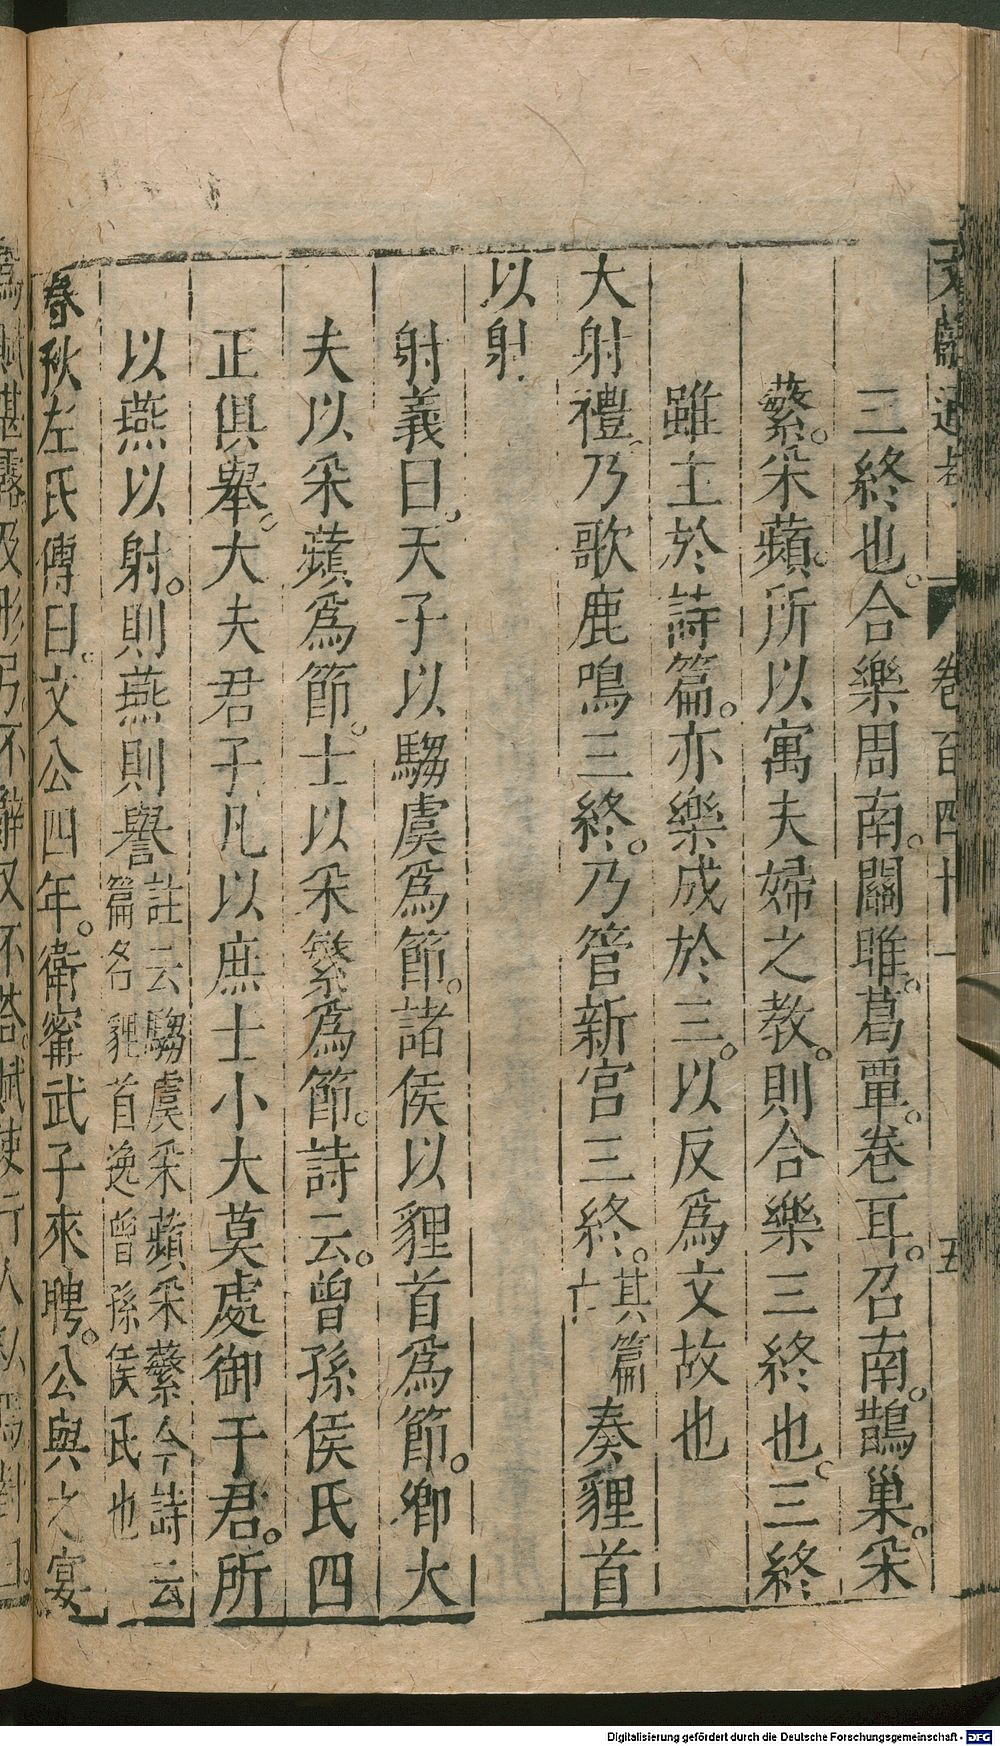 文獻通考 卷百四十一 五
三終也。合樂周南。關雎。葛覃。卷耳。召南。鵲巢。采
蘩。采蘋。所以寓夫婦之教。則合樂三終也。三終
雖主於詩篇。亦樂成於三。以反爲文故也
大射禮。乃歌鹿鳴三終。乃管新宮三終。其篇亡奏貍首
以射
射義曰。天子以騶虞爲節。諸侯以貍首爲節。卿大
夫以采蘋爲節。士以采蘩爲節。詩云。曾孫侯氏四
正俱舉。大夫君子凡以庶士小大莫處御于君。所
以燕以射。則燕則譽註云騶虞采蘋采蘩今詩云篇名貍首逸曾孫侯氏也
春秋左氏傳曰。文公四年。衛甯武子來聘。公與之宴
Digitalisierung gefördert durch die Deutsche Forschungsgemeinschaft - DFG